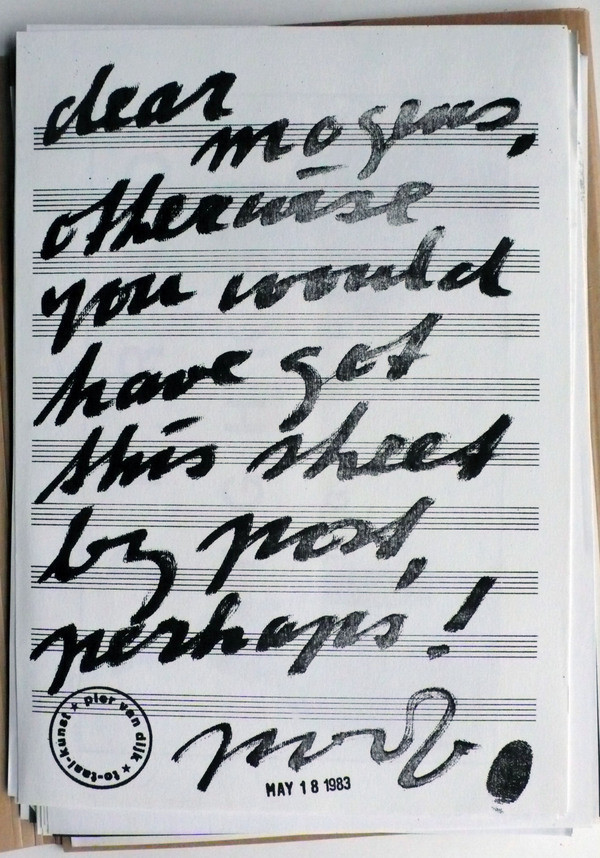 dear
mogens,
otherwise
you would
have got
this sheet
by post,
perhaps!
pier van dijk * to-taal-kunst *
MAY 18 1983